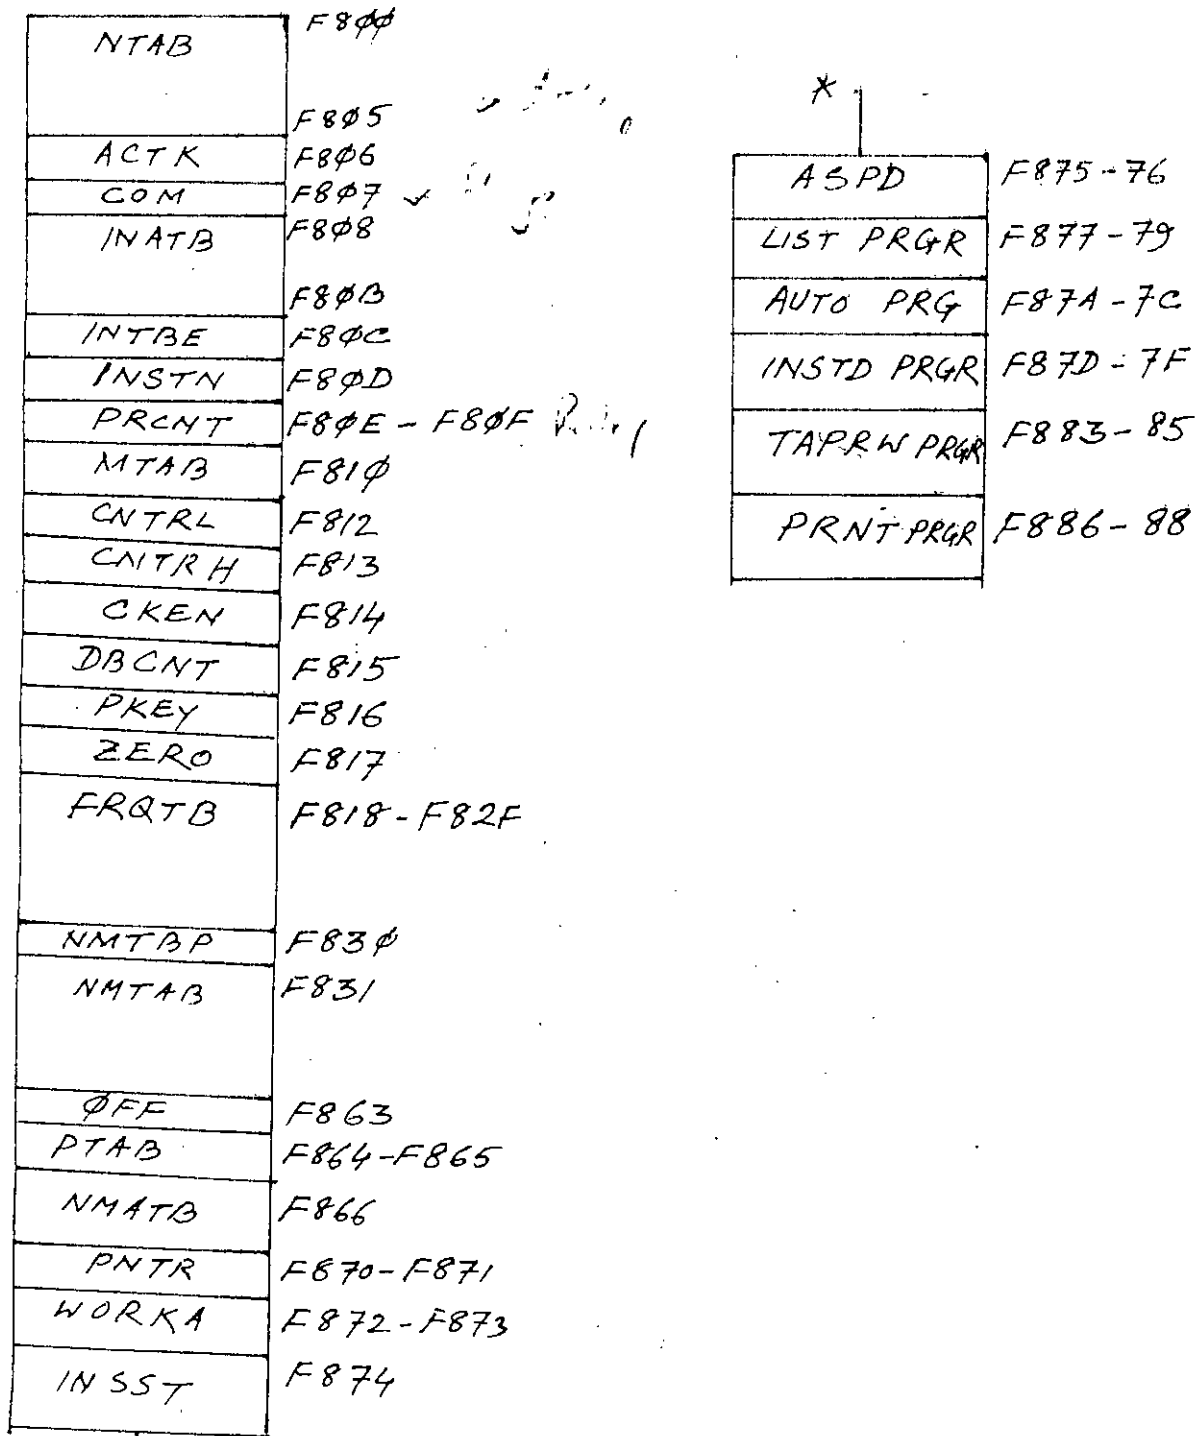 NTAB F8øø
F8ø5
ACTK F8ø6
COM F8ø7
INATB F8ø8
F8øB
INTBE F8øC
INSTN F8øD
PRCNT F8øE - F8øF
MTAB F81ø
CNTRL F812
CNTRH F813
CKEN F814
DBCNT F815
PKEY F816
ZERO F817
FRQTB F818 - F82F
NMTBP F83ø
NMTAB F831
øFF F863
PTAB F864-F865
NMATB F866
PNTR F870-F871
WORKA F872-F873
INSST F874
*
ASPD F875-76
LIST PRGR F877-79
AUTO PRG F87A-7C
INSTD PRGR F87D-7F
TAPRW PRGR F883-85
PRNT PRGR F886-88